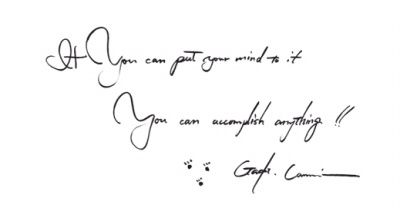 If You can put your mind to it
You can accomplish anything !!